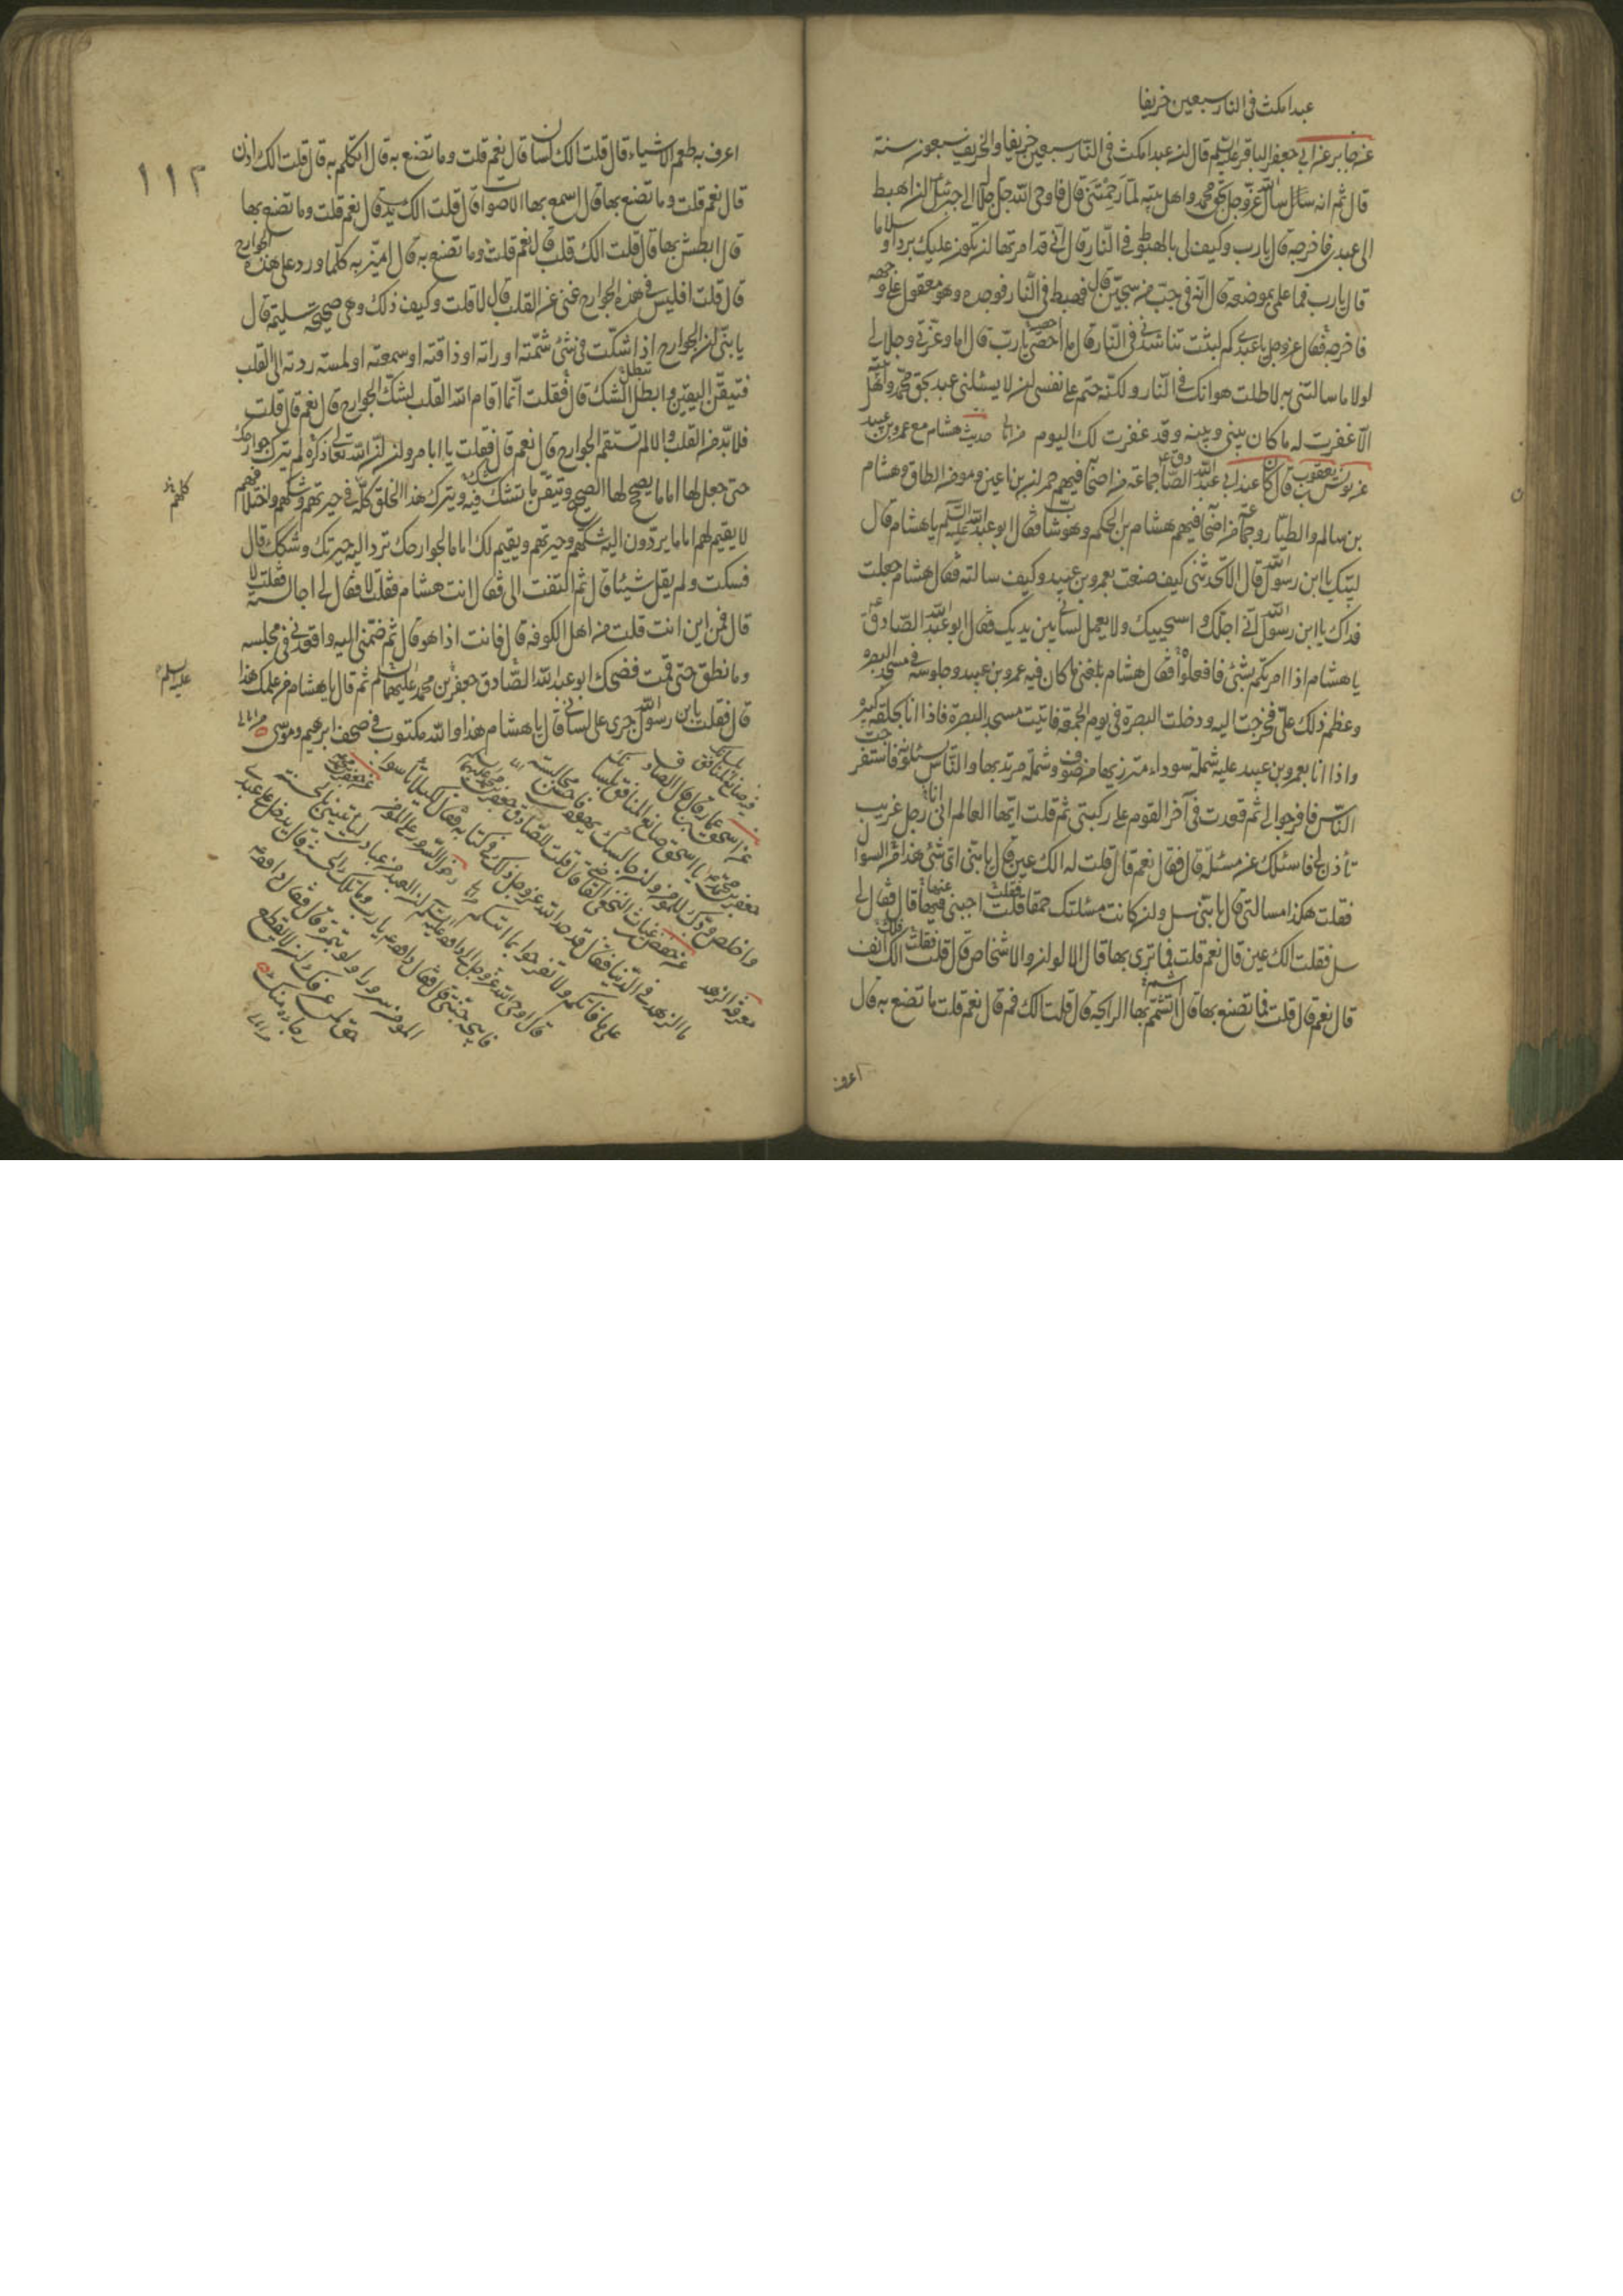 عبدا مكث فى النار سبعين خريفا
عن جابر عن ابى جعفر الباقر عليه السلم قال ان عبدا مكث فى النار سبعين خريفا والخريف سبعون سنة
قال ثم انه سأل الله عز وجل بحق محمد واهل بيته لما رحمتنى قال فاوحى الله جل جلاله الى جبرئيل ان اهبط
الى عبدى فاخرجه قال يا رب وكيف لى بالهبوط فى النار قال انى قد امرتها ان تكون عليك بردا وسلاما
قال يا رب فما علمى بموضعه قال انه فى جب من سجين قال فهبط فى النار فوجده وهو معقول على وجهه
فاخرجه فقال عز وجل يا عبدى كم لبثت تناشدنى فى النار قال ما احصى يا رب قال اما وعزتى وجلالى
لولا ما سالتنى به لاطلت هوانك فى النار ولكنه حتم على نفسى ان لا يسئلنى عبد بحق محمد واهل بيته
الا غفرت له ما كان بينى وبينه وقد غفرت لك اليوم حديث هشام مع عمرو بن عبيد
عن يونس بن يعقوب قال كان عند ابى عبد الله الصادق جماعة من اصحابه فيهم حمران بن اعين ومومن الطاق وهشام
بن سالم والطيار وجماعة من اصحابه فيهم هشام بن الحكم وهو شاب فقال ابو عبد الله عليه السلم يا هشام قال
لبيك يا ابن رسول الله قال الا تحدثنى كيف صنعت بعمرو بن عبيد وكيف سالته فقال هشام جعلت
فداك يا ابن رسول الله انى اجلك واستحييك ولا يعمل لسانى بين يديك فقال ابو عبد الله الصادق ع
يا هشام اذا امرتكم بشئ فافعلوا فقال هشام بلغنى ما كان فيه عمرو بن عبيد وجلوسه فى مسجد البصره
وعظم ذلك على فخرجت اليه ودخلت البصرة فى يوم الجمعة فاتيت مسجد البصرة فاذا انا بحلقة كبيره
واذا انا بعمرو بن عبيد عليه شملة سوداء متزر بها من صوف وشملة مرتد بها والناس يسئلونه فاستفرجت
الناس فافرجوا لى ثم قعدت فى آخر القوم على ركبتى ثم قلت ايها العالم انى رجل غريب
تأذن لى فاسئلك عن مسئلة قال فقال نعم قال قلت له الك عين قال يا بنى اى شئ هذا من السوال
فقلت هكذا مسالتى قال يا بنى سل وان كانت مسئلتك حمقا فقلت اجبنى فيها قال فقال لى
سل فقلت الك عين قال نعم قلت فما ترى بها قال الالوان والاشخاص قال قلت الك انف
قال نعم قال قلت فما تصنع بها قال اتشمم بها الرايحة قال قلت الك فم قال نعم قلت ما تصنع به قال
اعرف
١١٢
اعرف به طعم الاشياء قال قلت الك لسان قال نعم قلت وما تصنع به قال اتكلم به قال قلت الك اذن
قال نعم قلت وما تصنع بها قال اسمع بها الاصوات قال قلت الك يد قال نعم قلت وما تصنع بها
قال ابطش بها قال قلت الك قلب قال نعم قلت وما تصنع به قال اميز به كلما ورد على هذه الجوارح
قال قلت افليس فى هذه الجوارح غنى عن القلب قال لا قلت وكيف ذلك وهى صحيحة سليمة قال
يا بنى ان الجوارح اذا شكت فى شئ شمته او راته او ذاقته او سمعته او لمسته ردته الى القلب
فتيقن اليقين وابطل الشك قال فقلت انما اقام الله القلب لشك الجوارح قال نعم قال قلت
فلا بد من القلب والا لم تستقم الجوارح قال نعم قال فقلت يا ابا مروان ان الله تعالى ذكره لم يترك جوارحك
حتى جعل لها اماما يصحح لها الصحيح وتيقن ما تشك فيه ويترك هذا الخلق كله فى حيرتهم وشكهم واختلافهم
كلهم
لا يقيم لهم اماما يردون اليه شكهم وحيرتهم ويقيم لك اماما لجوارحك ترد اليه حيرتك وشكك قال
فسكت ولم يقل شيئا قال ثم التفت الى فقال انت هشام فقلت لا فقال لى اجالسته فقلت لا
قال فمن اين انت قلت من اهل الكوفه قال فانت اذا هو قال ثم ضمنى اليه واقعدنى فى مجلسه
وما نطق حتى قمت فضحك ابو عبد الله الصادق جعفر بن محمد عليهما السلم ثم قال يا هشام من علمك هذا
عليه السلم
قال فقلت يا بن رسول الله جرى على لسانى قال يا هشام هذا والله مكتوب فى صحف ابرهيم وموسى
عن اسحق بن عمار قال قال الصادق
جعفر بن محمد يا اسحق صانع المنافق بلسانك
واخلص ودك للمومن وان جالسك يهودى فاحسن مجالسته
معرفة الزهد
عن حفص بن غياث النخعى القاضى قال قلت للصادق جعفر بن محمد عليهما
ما الزهد فى الدنيا فقال قد حد الله عز وجل ذلك فى كتابه فقال لكيلا تأسوا
على ما فاتكم ولا تفرحوا بما اتيكم
قال اوحى الله عز وجل الى داود عليه السلم ان العبد من عبادى لياتينى بالحسنة
فابيحه جنتى قال فقال داود يا رب وما تلك الحسنة قال يدخل على عبدى
المومن سرورا ولو بتمرة قال فقال داود
حق لمن عرفك ان لا يقطع
رجاءه منك